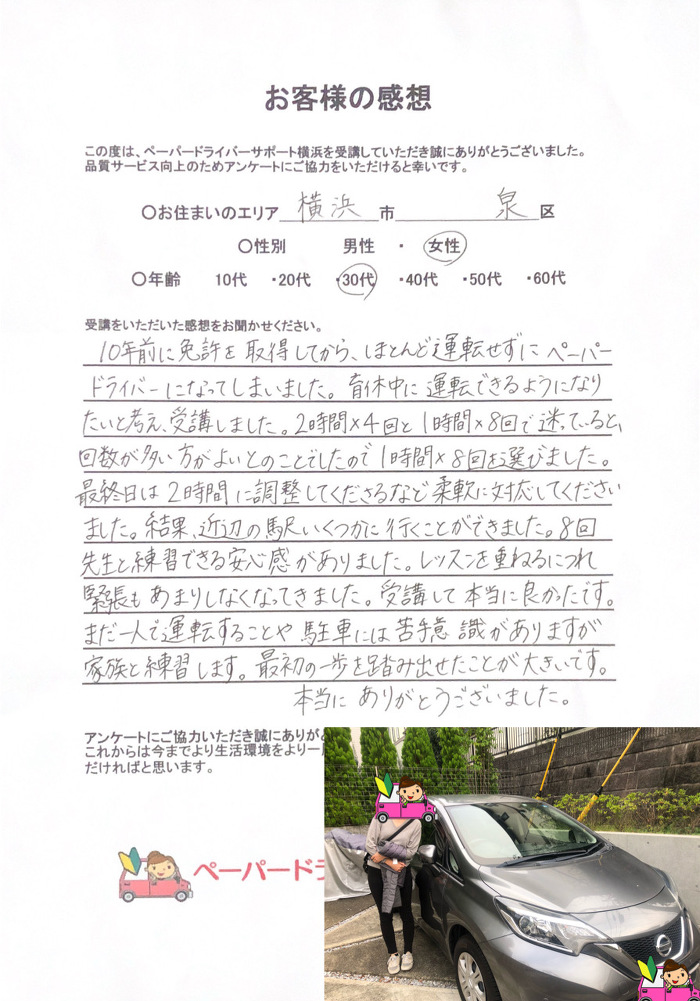 お客様の感想
この度は、ペーパードライバーサポート横浜を受講していただき誠にありがとうございました。
品質サービス向上のためアンケートにご協力をいただけると幸いです。
〇お住まいのエリア 横浜 市 泉 区
〇性別 男性 ・ 女性
〇年齢 10代 ・20代 ・30代 ・40代 ・50代 ・60代
受講をいただいた感想をお聞かせください。
10年前に免許を取得してから、ほとんど運転せずにペーパー
ドライバーになってしまいました。育休中に運転できるようになり
たいと考え、受講しました。2時間×4回と1時間×8回で迷っていると、
回数が多い方がよいとのことでしたので1時間×8回を選びました。
最終日は2時間に調整してくださるなど柔軟に対応してください
ました。結果、近辺の駅いくつかに行くことができました。8回
先生と練習できる安心感がありました。レッスンを重ねるにつれ
緊張もあまりしなくなってきました。受講して本当に良かったです。
まだ一人で運転することや駐車には苦手意識がありますが
家族と練習します。最初の一歩を踏み出せたことが大きいです。
本当にありがとうございました。
アンケートにご協力いただき誠にありが
これからは今までより生活環境をより一
だければと思います。
ペーパード